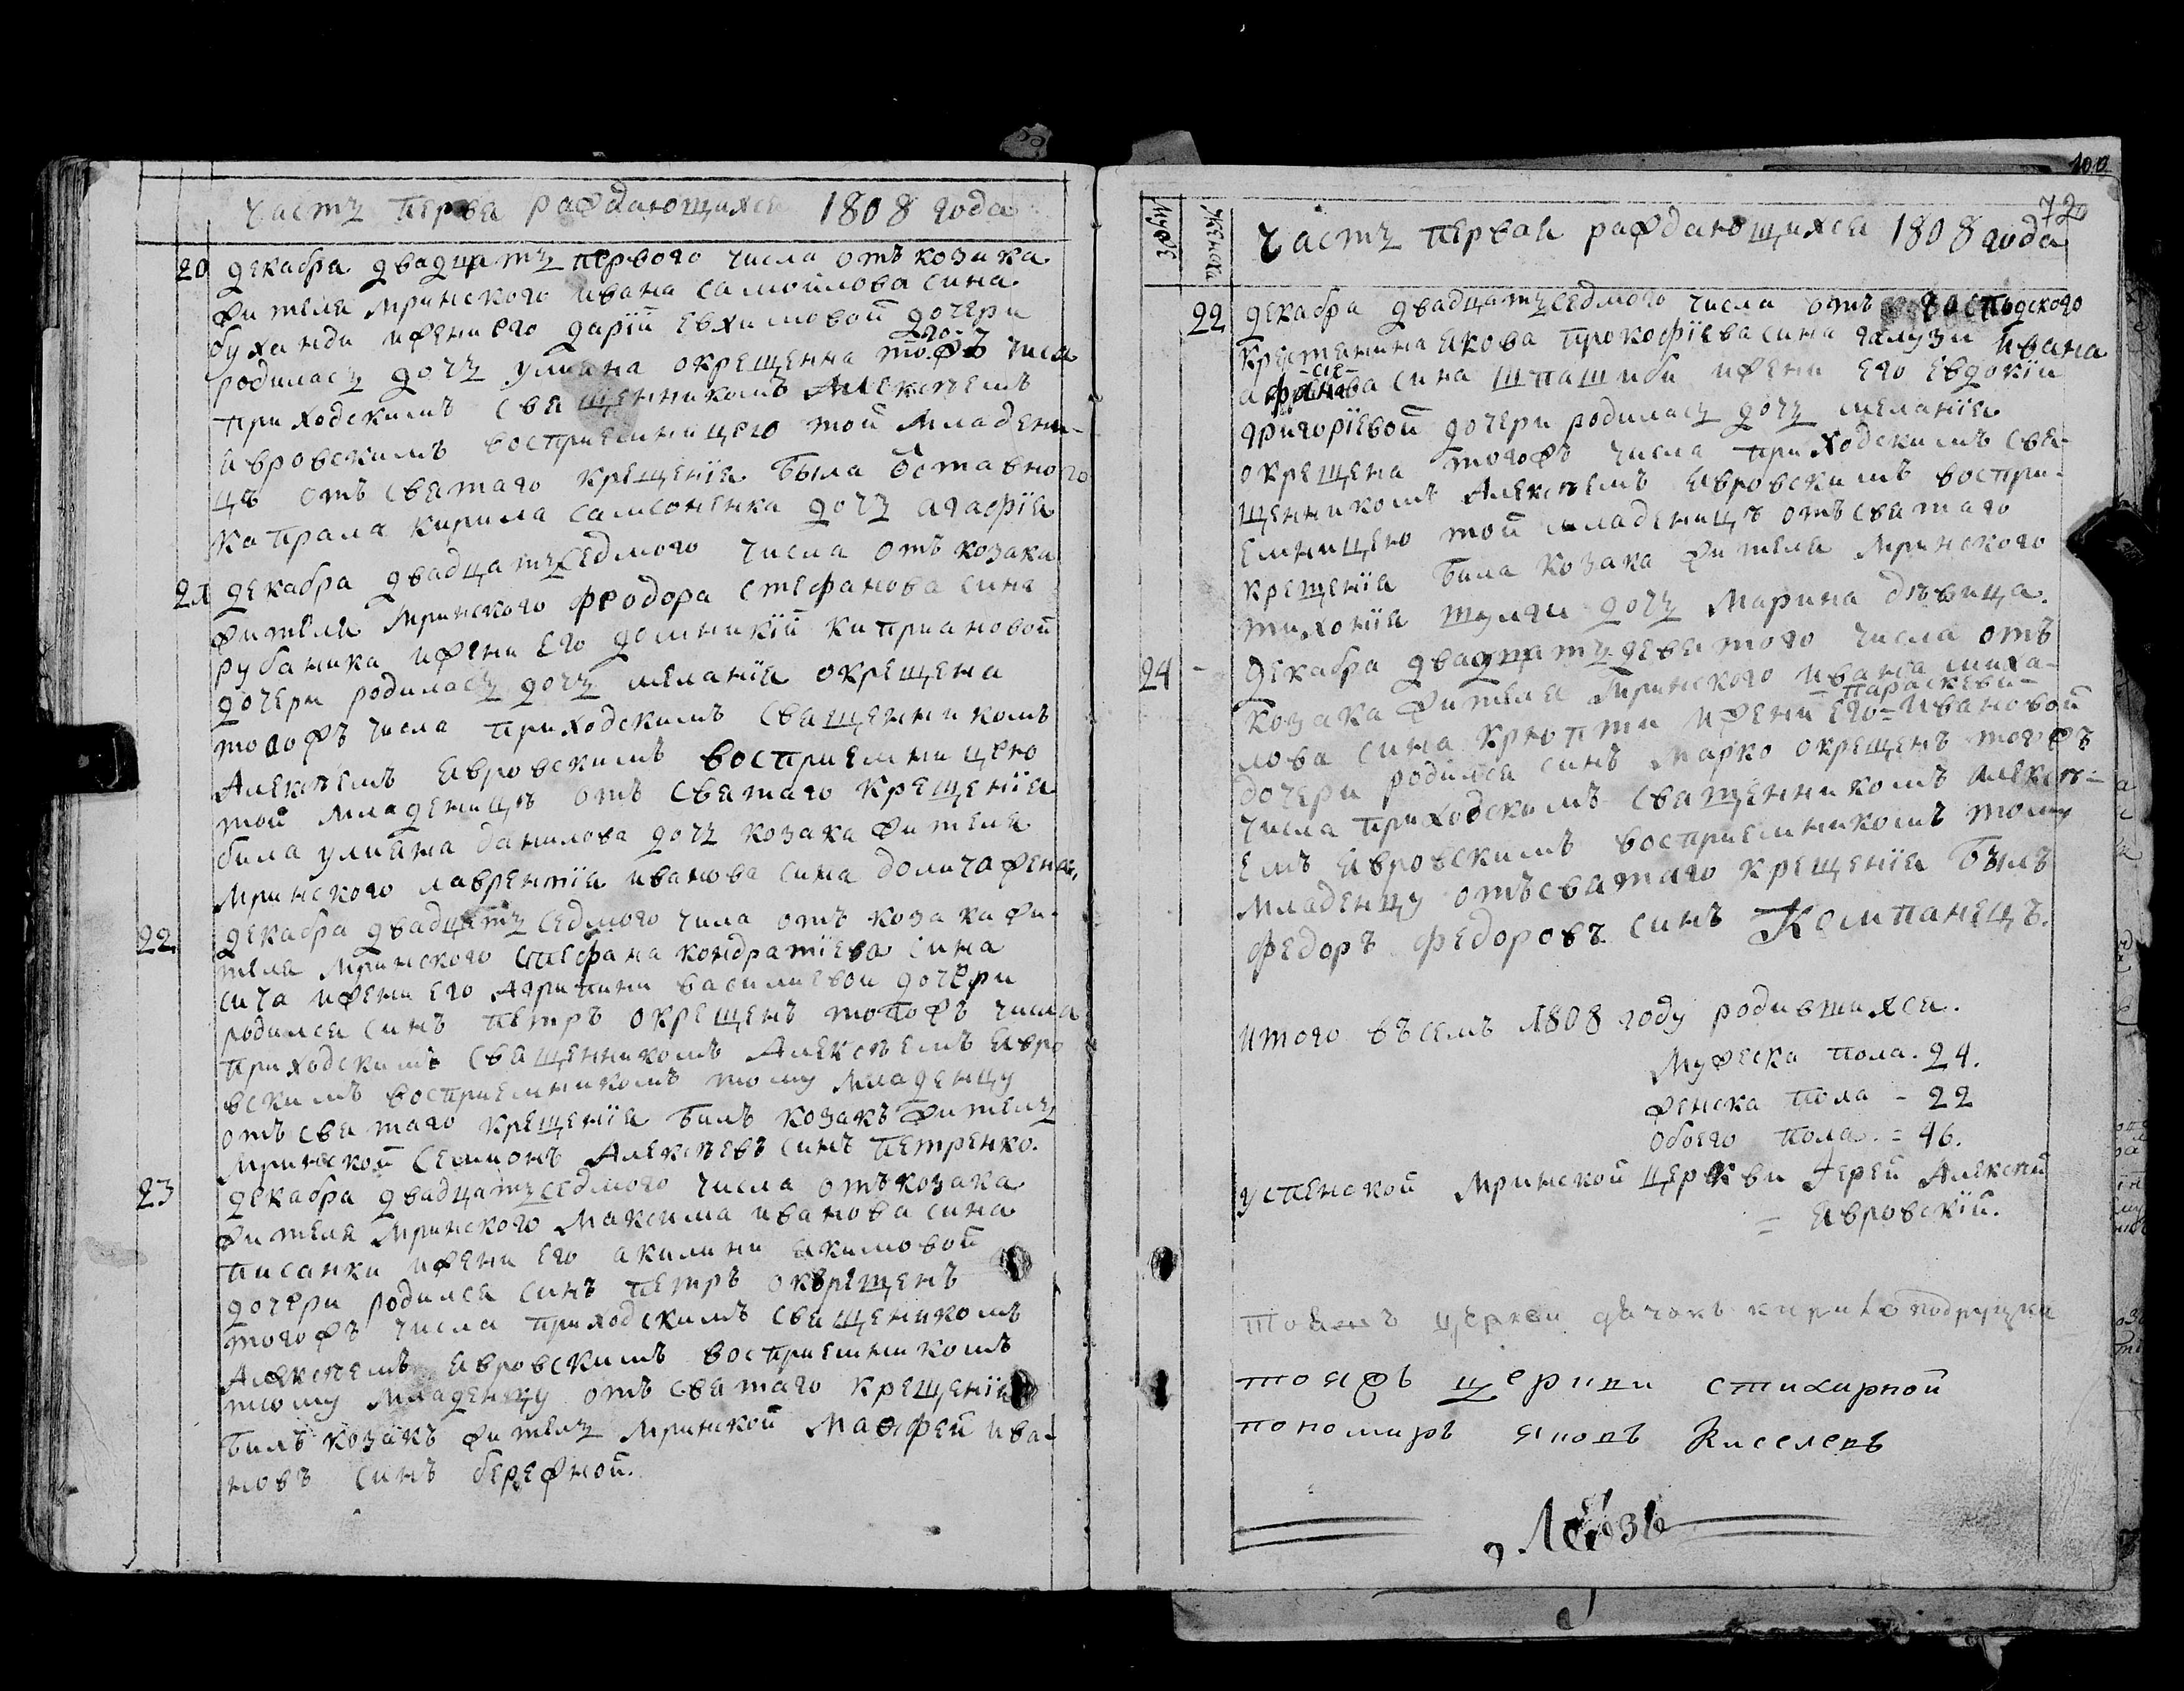 Частъ перва раждающихся 1808 года
20 декабра двадцать первого числа отъ козака
жителя мринского ивана самойлова сина
буханди ижени его дарїи евхимовой дочери
родилась дочь улияна окрещенна тогожъ числа
приходскимъ священникомъ Алексѣемъ
явровскимъ восприемницею той младени-
цѣ отъ святаго крещенїя была Оставного
капрала кирила самсоненка дочь агафїя
21 декабра двадцатьседмого числа отъ козака
жителя мринского феодора стефанова сина
рубаника ижени его домникїи киприановой
дочери родилась дочь меланїя окрещена
тогожъ числа приходскимъ священникомъ
Алексѣемъ явровскимъ восприемницею
той младеницѣ отъ святаго крещенїя
била улияна данилова дочь козака жителя
мринского лаврентїя иванова сина жена
22 декабра двадцать седмого чила отъ козака жи-
теля мринского стефана кондратїева сина
сича ижени его Агрипини василиевой дочери
родился синъ петръ окрещенъ тогожъ числа
приходскимъ священникомъ Алексѣемъ явро
вскимъ восприемникомъ тому младенцу
отъ святаго крещенїя билъ козакъ житель
мринской семионъ Алексѣевъ синъ петренко.
23 декабра двадцатьседмого числа отъ козака
жителя мринского максима иванова сина
писанки ижени его акилини акимовой
дочери родился синъ петръ окрещенъ
тогожъ числа приходскимъ священикомъ
Алексѣемъ явровскимъ восприемникомъ
тому младенцу отъ святаго крещенїя
билъ козакъ житель мринской Маѳфей ива-
новъ синъ бережной.
72
мужеска женска
Частъ первая раждающихся 1808 года
22 декабра двадцатьседмого числа отъ господского
крестянина якова прокофїева сина галузи ивана
сина шпашиби ижени его евдокїи
григорїевой дочери родилась дочь меланїя
окрещена тогожъ числа приходскимъ свя-
щенникомъ Алексѣемъ явровскимъ воспри-
емницею той младеницѣ отъ святаго
крещенїя била козака жителя мринского
тихонїя дочь Марина дѣвица.
24 - Декабра двадцать девятого числа отъ
козака жителя мринского ивана миха-
параскеви-
лова сина крюпти ижени его=ивановой
дочери родился синъ марко окрещенъ тогожъ
числа приходскимъ священникомъ Алексѣ-
емъ явровскимъ восприемникомъ тому
младенцу отъсватаго крещенїя былъ
федоръ федоровъ синъ Компанецъ.
итого въсемъ 1808 году родившихся.
мужеска пола. 24.
женска пола - 22
обоего пола. = 46.
успенской мринской церкви Іерей Алексѣй
= явровскїй.
церкви дячокъ
тояжъ церкви стихарной
пономаръ яковъ Киселевъ